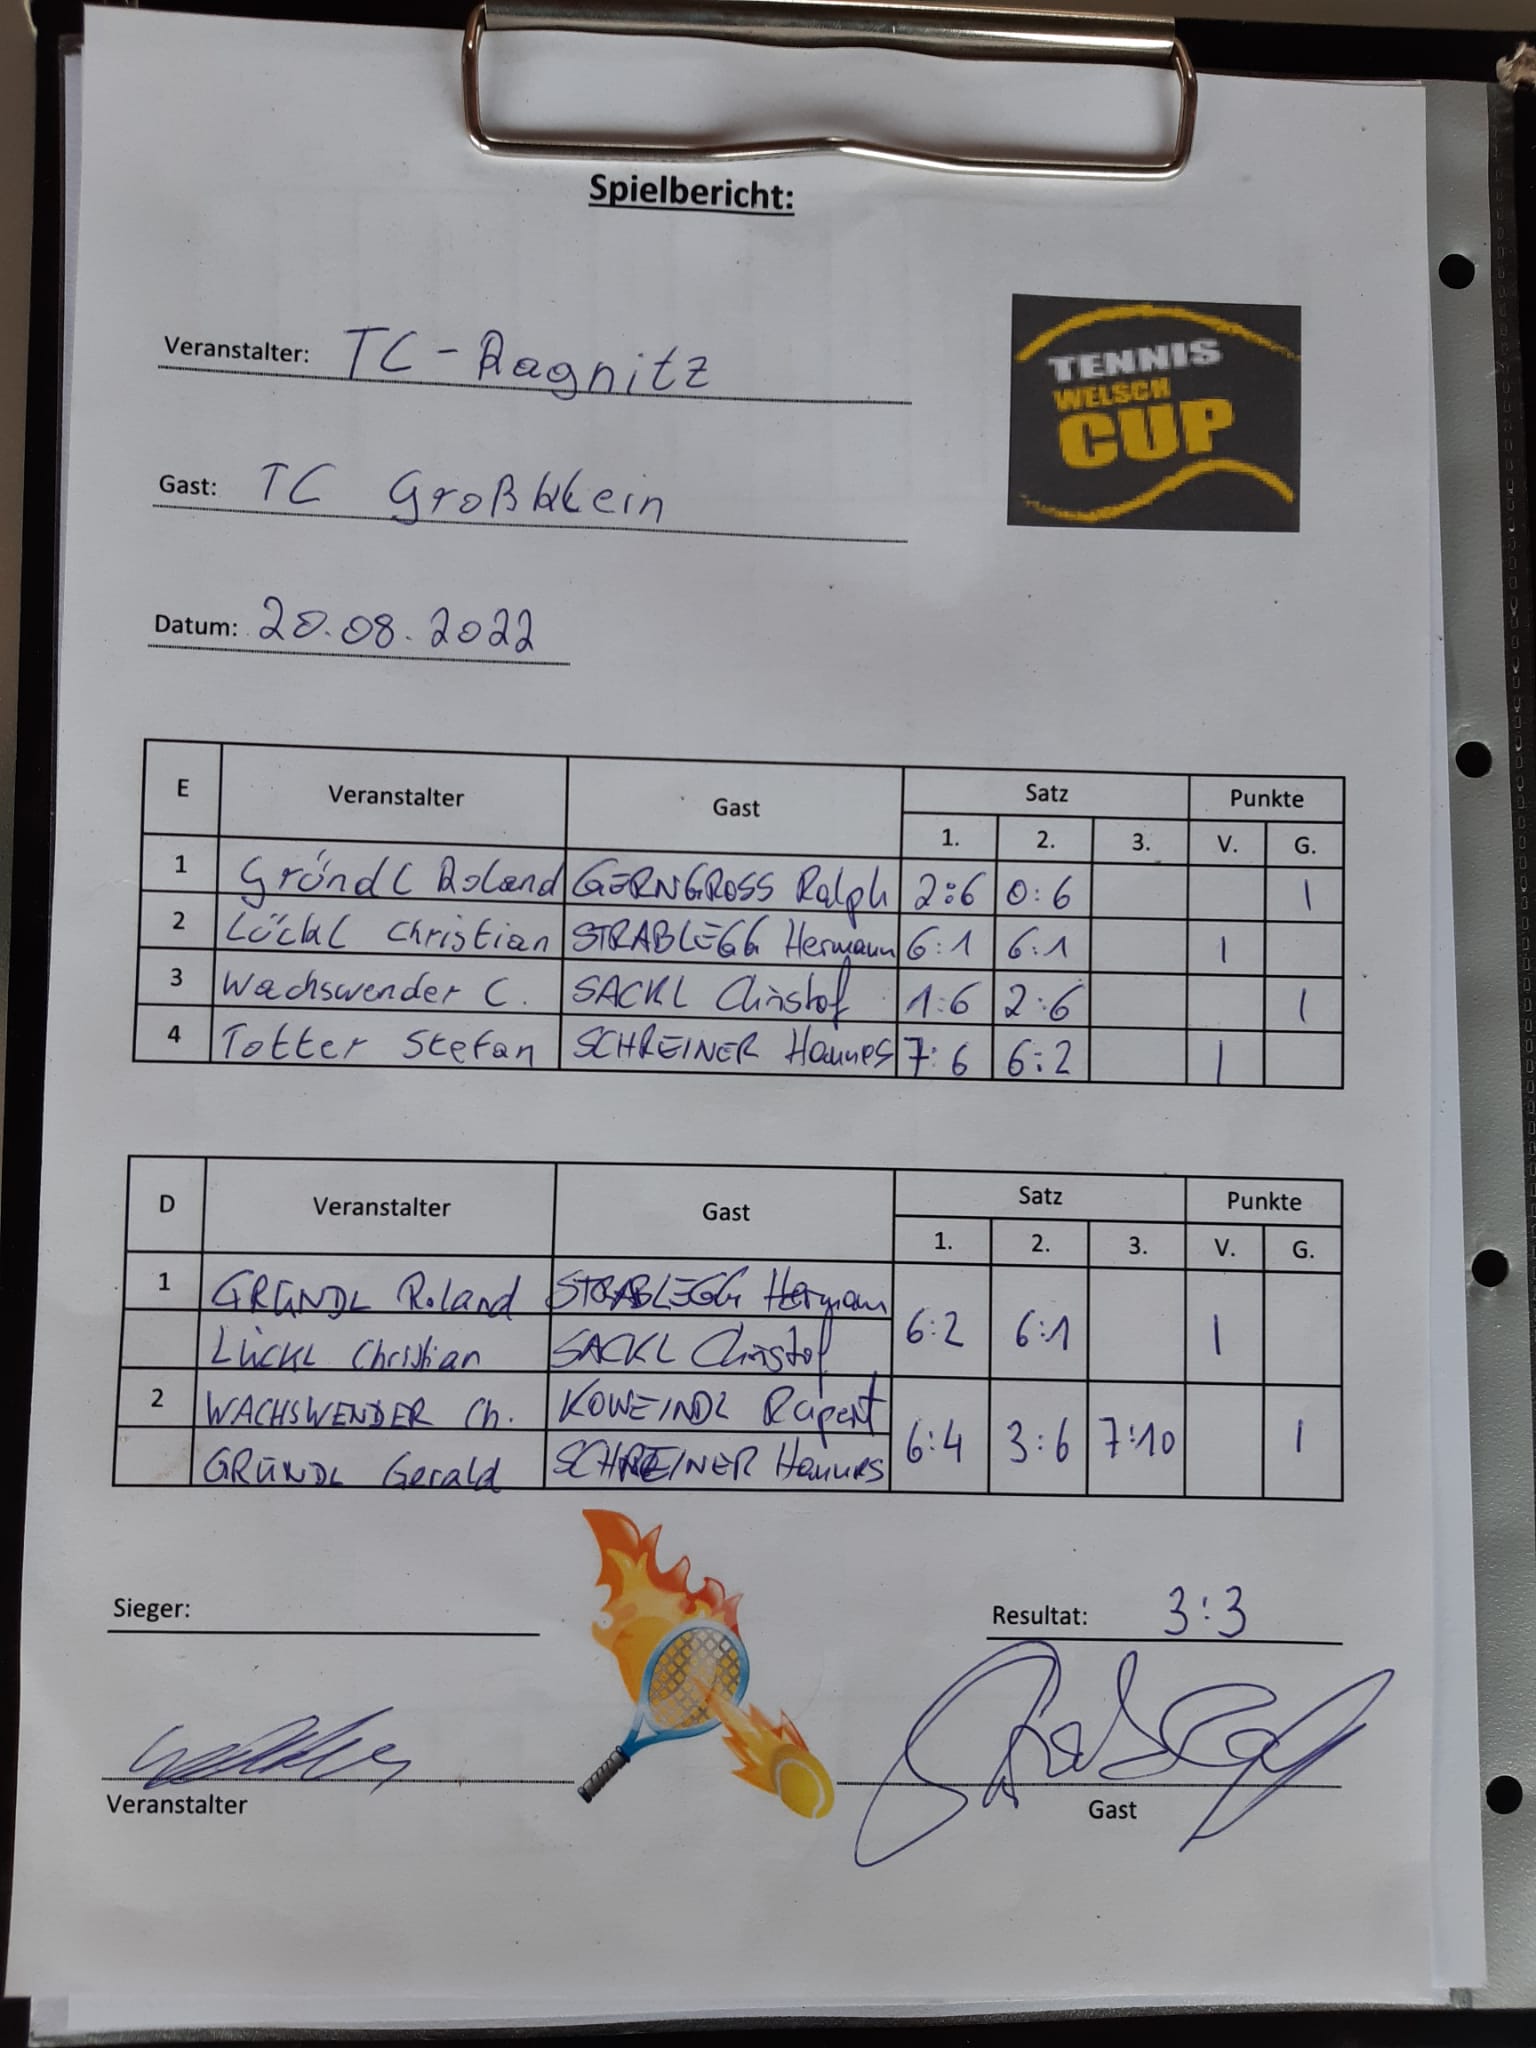 Spielbericht:
Veranstalter: TC-Ragnitz
TENNIS
WELSCH
CUP
Gast: TC Großklein
Datum: 20.08.2022
E Veranstalter Gast Satz Punkte
1. 2. 3. V. G.
1 Gründl Roland GERNGROSS Ralph 2:6 0:6 1
2 Lückl Christian STRABLEGG Hermann 6:1 6:1 1
3 Wachswender C. SACKL Christof 1:6 2:6 1
4 Totter Stefan SCHREINER Hannes 7:6 6:2 1
D Veranstalter Gast Satz Punkte
1. 2. 3. V. G.
1 GRÜNDL Roland STRABLEGG Hermann
LÜCKL Christian SACKL Christof 6:2 6:1 1
2 WACHSWENDER Ch. KOWEINDL Rupert
GRÜNDL Gerald SCHREINER Hannes 6:4 3:6 7:10 1
Sieger:
Resultat: 3:3
Veranstalter
Gast